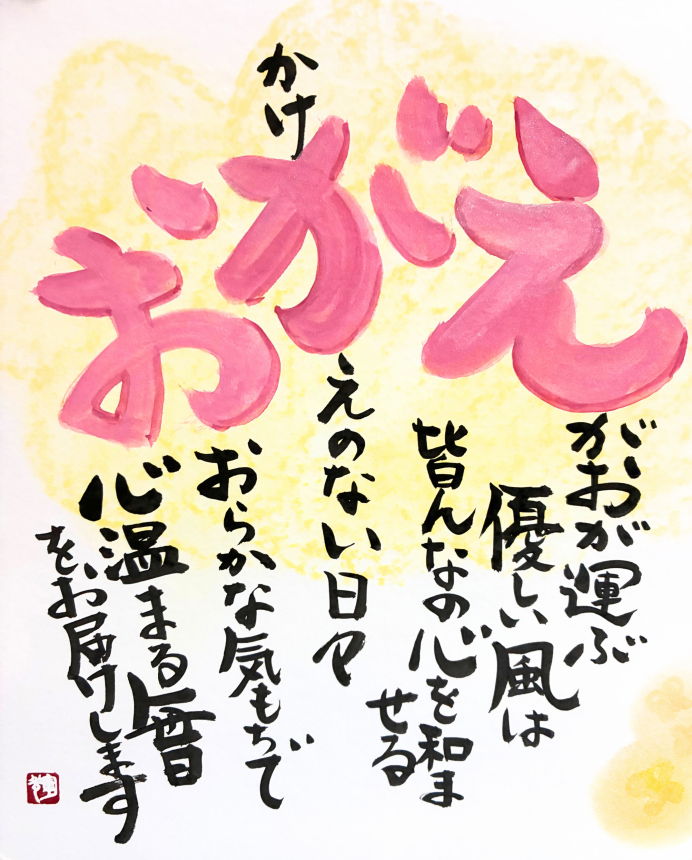 えがおが運ぶ
優しい風は
皆んなの心を和ま
せる
かけがえのない日々
おおらかな気もちで
心温まる毎日
をお届けします